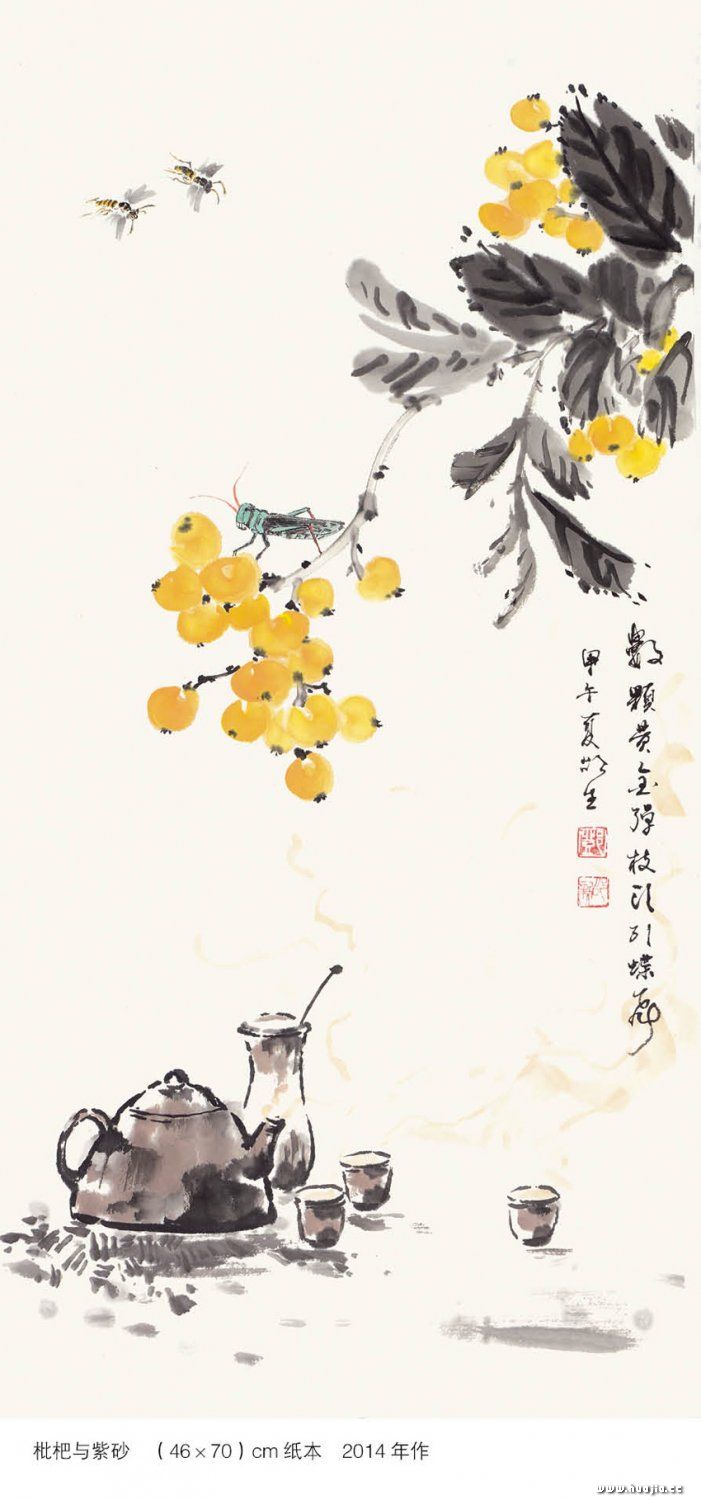 数颗黄金弹枝頭引蝶飛
甲午夏
生
枇杷与紫砂 （46×70）cm 纸本 2014 年作
www.huajia.cc